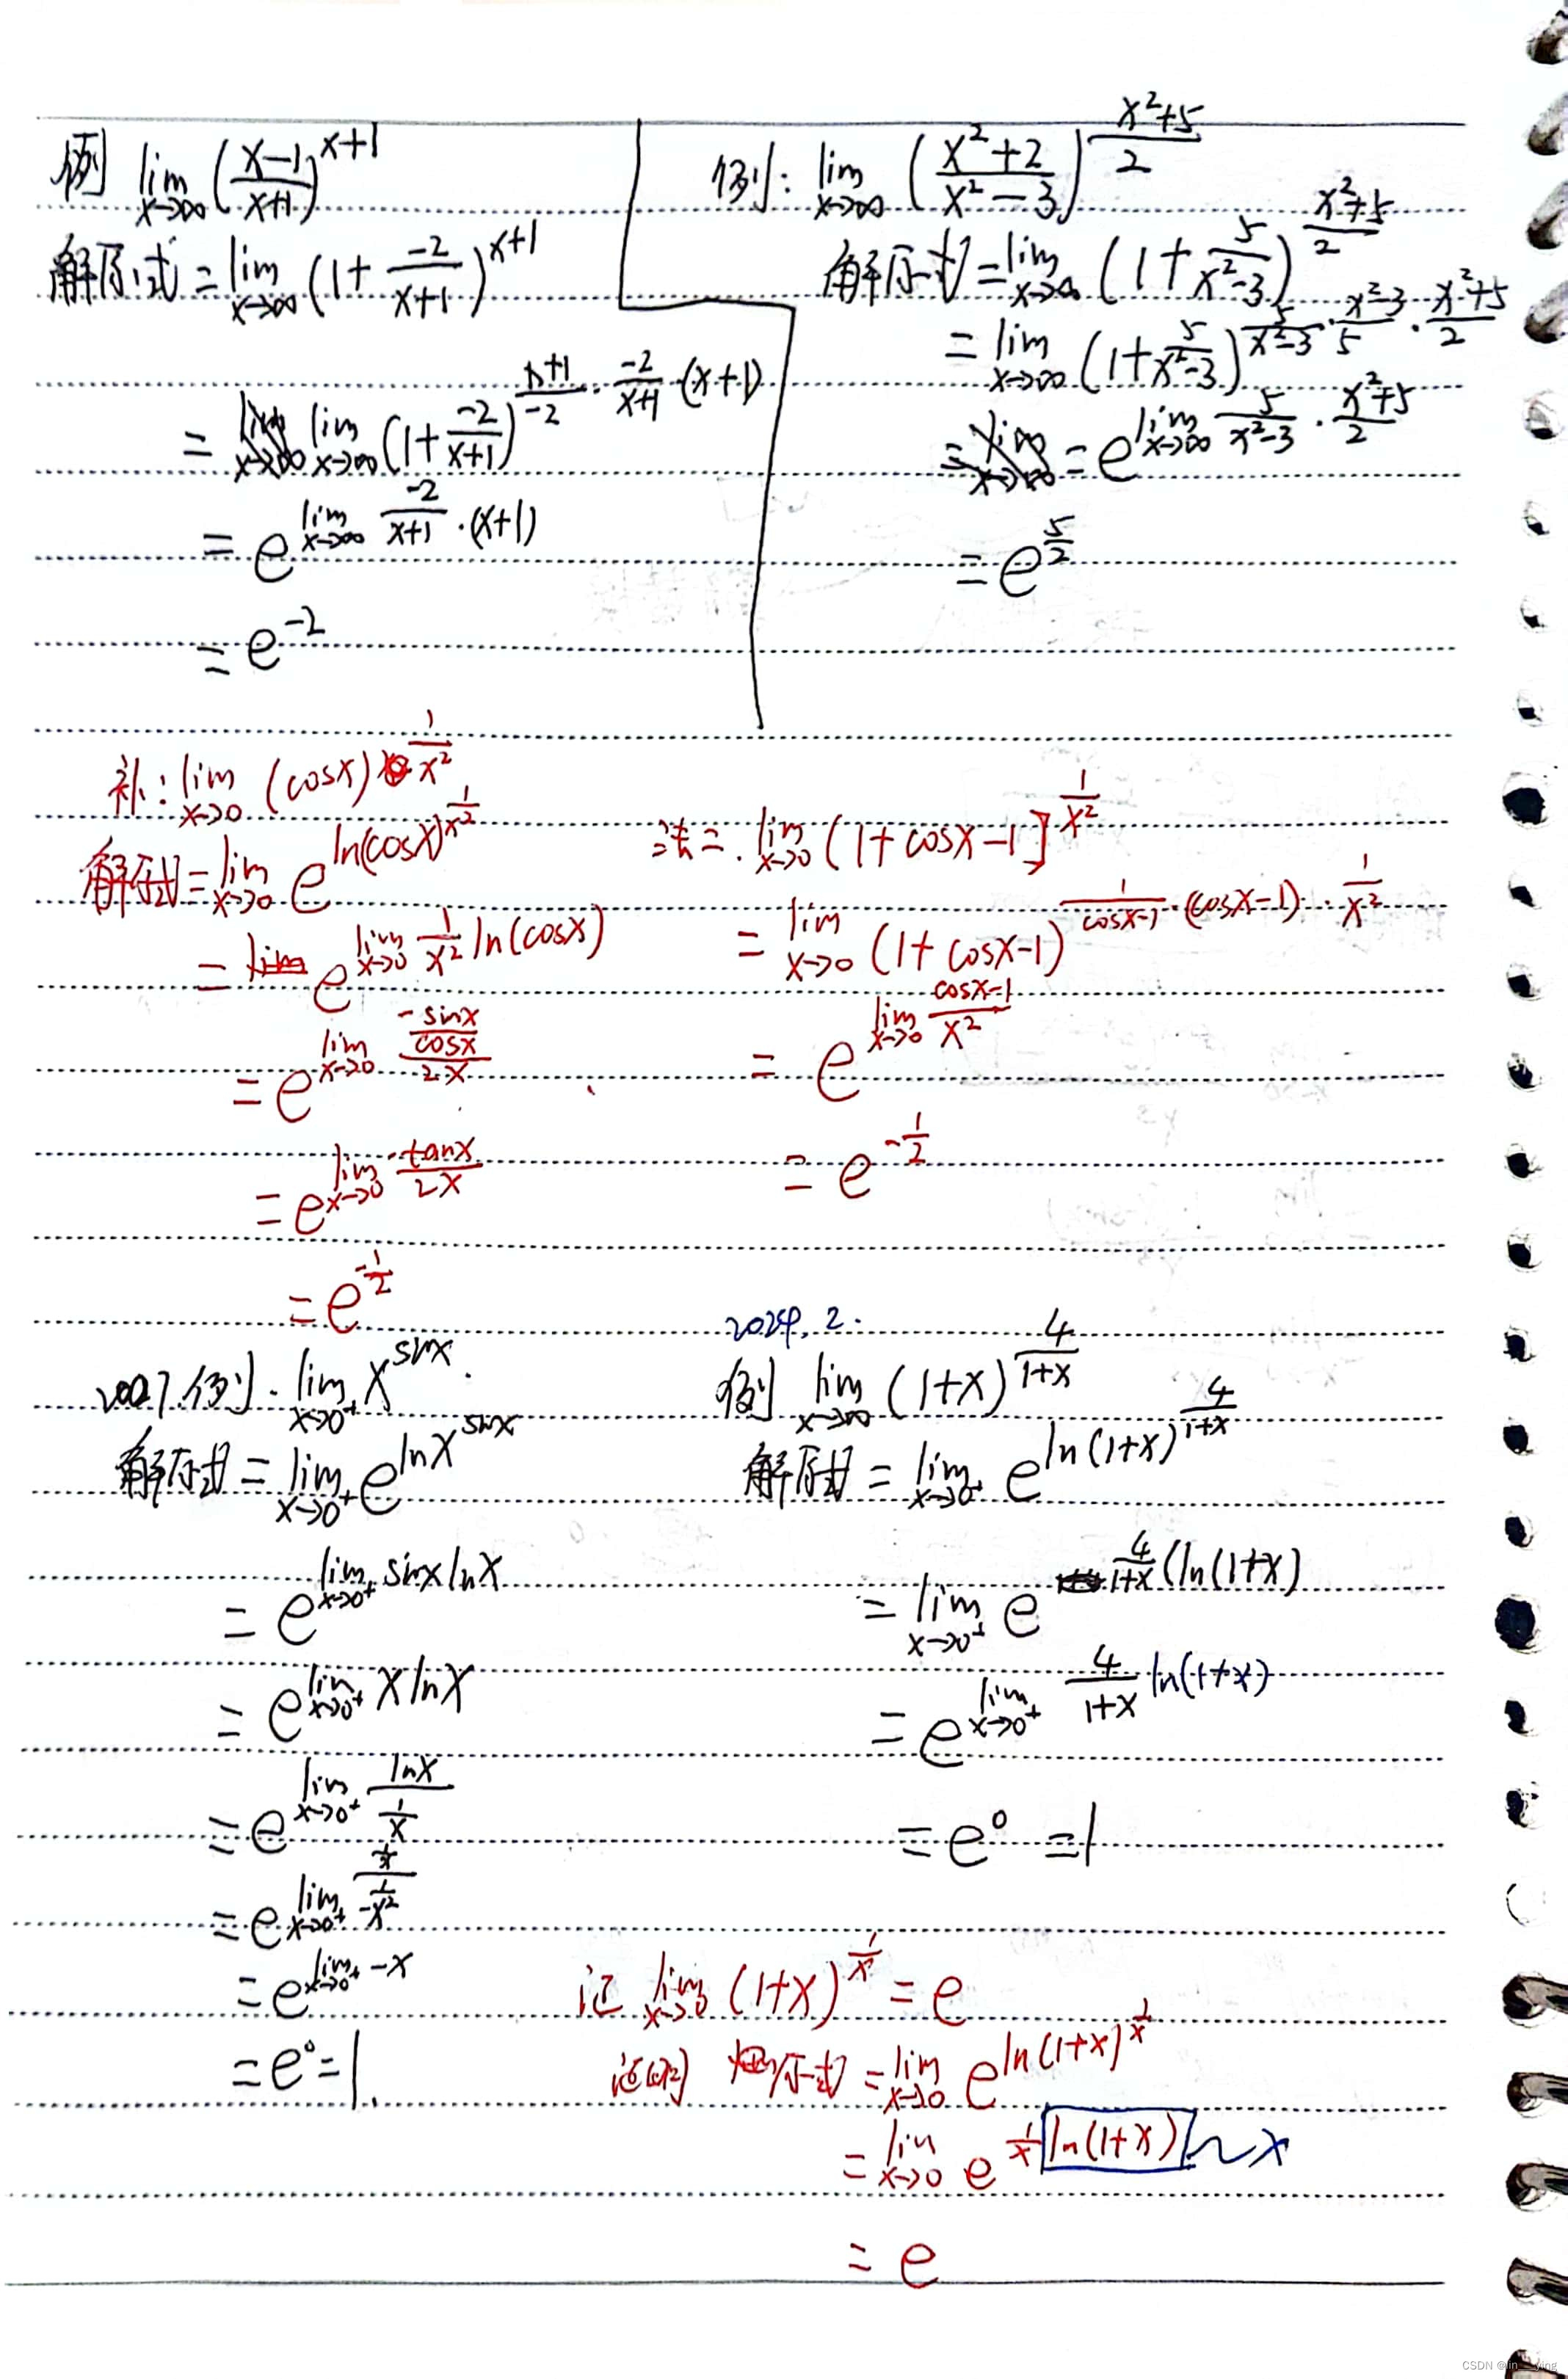 例 lim x→∞ ((x-1)/(x+1))^(x+1)
解原式 = lim x→∞ (1 + (-2)/(x+1))^(x+1)
= lim x→∞ (1 + (-2)/(x+1))^((x+1)/(-2) · (-2)/(x+1) · (x+1))
= e^(lim x→∞ (-2)/(x+1) · (x+1))
= e^(-2)
例: lim x→∞ ((x²+2)/(x²-3))^((x²+5)/2)
解原式 = lim x→∞ (1 + 5/(x²-3))^((x²+5)/2)
= lim x→∞ (1 + 5/(x²-3))^(5/(x²-3) · (x²-3)/5 · (x²+5)/2)
= e^(lim x→∞ 5/(x²-3) · (x²+5)/2)
= e^(5/2)
补: lim x→0 (cosx)^(1/x²)
解原式 = lim x→0 e^(ln(cosx)^(1/x²))
= e^(lim x→0 1/x² ln(cosx))
= e^(lim x→0 (-sinx/cosx)/(2x))
= e^(lim x→0 -tanx/(2x))
= e^(-1/2)
法二. lim x→0 (1+cosx-1]^(1/x²)
= lim x→0 (1+cosx-1)^(1/(cosx-1) · (cosx-1) · 1/x²)
= e^(lim x→0 (cosx-1)/x²)
= e^(-1/2)
2007.例. lim x→0⁺ x^(sinx).
解原式 = lim x→0⁺ e^(lnx^(sinx))
= e^(lim x→0⁺ sinxlnx)
= e^(lim x→0⁺ xlnx)
= e^(lim x→0⁺ lnx/(1/x))
= e^(lim x→0⁺ (1/x)/(1/-x²))
= e^(lim x→0⁺ -x)
= e⁰ = 1.
2024.2.
例 lim x→∞ (1+x)^(4/(1+x))
解原式 = lim x→0⁺ e^(ln(1+x)^(4/(1+x)))
= lim x→0⁺ e^(4/(1+x) (ln(1+x))
= e^(lim x→0⁺ 4/(1+x) ln(1+x))
= e⁰ = 1
记 lim x→0 (1+x)^(1/x) = e
证明 原式 = lim x→0 e^(ln(1+x)^(1/x))
= lim x→0 e^(1/x ln(1+x)) ~ x
= e